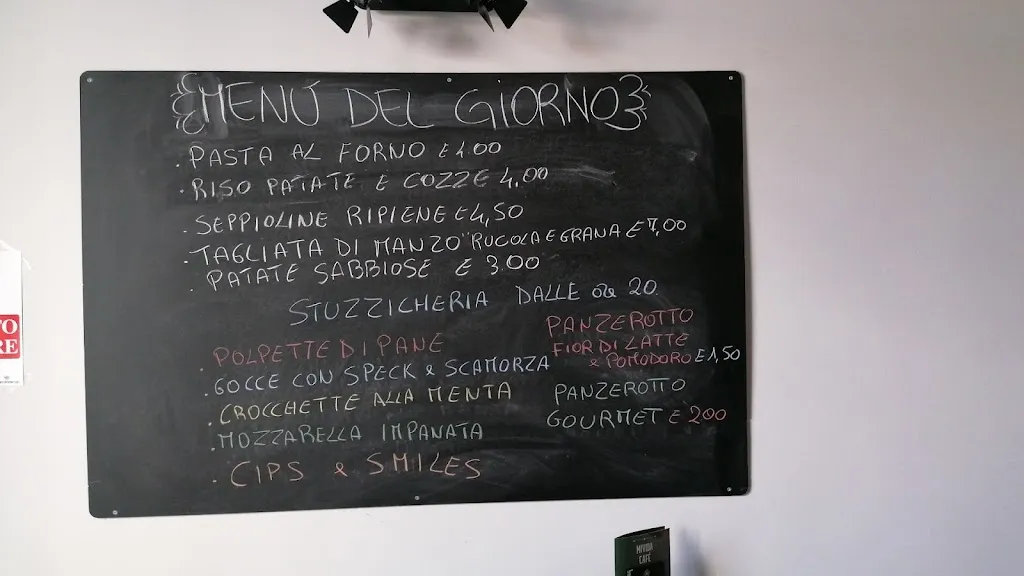 MENÚ DEL GIORNO
. PASTA AL FORNO € 4.00
. RISO PATATE E COZZE 4.00
. SEPPIOLINE RIPIENE € 4,50
. TAGLIATA DI MANZO "RUCOLA E GRANA € 7,00
. PATATE SABBIOSE € 3.00
STUZZICHERIA DALLE ore 20
. POLPETTE DI PANE
. GOCCE CON SPECK & SCAMORZA
. CROCCHETTE ALLA MENTA
. MOZZARELLA IMPANATA
. CIPS & SMILES
PANZEROTTO
FIOR DI LATTE
& POMODORO € 1,50
PANZEROTTO
GOURMET € 200
TO
RE
MIVIDA
CAFÈ